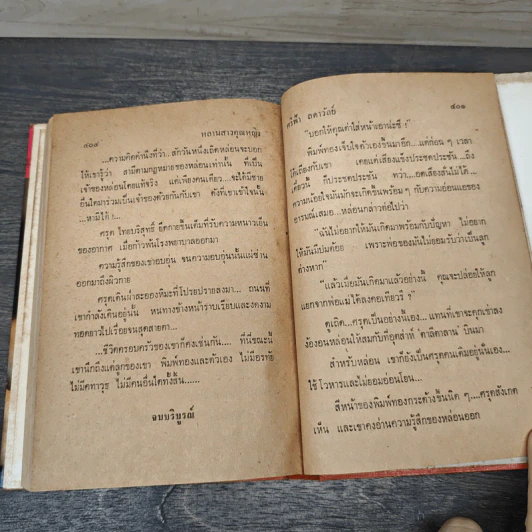 ๔๐๔ หลานสาวคุณหญิง
...ความคิดคำนึงที่ว่า.. สักวันหนึ่งเธิดหล่อนจะบอก
ให้เขารู้ว่า สามีตามกฎหมายของหล่อนเท่านั้น ที่เป็น
เจ้าของหล่อนโดยแท้จริง แต่เพียงคนเดียว...จะได้มีชาย
อื่นใดมาร่วมเป็นเจ้าของด้วยกันกับเขา ดังที่เขาเข้าใจนั้น
...หามิได้ !...
ครุฑ ไทยบริสุทธิ์ ยืดกายขึ้นเต็มที่รับความหนาวเย็น
ของอากาศ เมื่อก้าวพ้นโรงพยาบาลออกมา
ความรู้สึกของเขาอบอุ่น จนความอบอุ่นนั้นแผ่ซ่าน
ออกมาถึงผิวกาย
ครุฑเดินฝ่าละอองหิมะที่โปรยปรายลงมา... ถนนที่
เขากำลังเดินอยู่นั้น หนทางข้างหน้าราบเรียบและงดงาม
ทอดยาวไปเรื่อยจนสุดสายตา...
...ชีวิตครอบครัวของเขาก็คงเช่นกัน.... ที่นี่ขณะนี้
เขานึกถึงแต่ลูกของเขา พิมพ์ทองและตัวเอง ไม่มีอรทัย
ไม่มีคทาวุธ ไม่มีคนอื่นใดทั้งสิ้น......
จบบริบูรณ์
ลดาวัลย์ ๔๐๑
"บอกให้คุณด่าใส่หน้าเอาน่ะซี ?"
พิมพ์ทองเจ็บใจตัวเองขึ้นมาอีก....แต่ก่อน ๆ เวลา
โต้เถียงกับเขา เคยแต่เถียงแข็งประชดประชัน....ถึง
เดี๋ยวนี้ ก็ประชดประชัน ทว่า....อดเสียงสั่นไม่ได้....
ความน้อยใจมันมักจะเกิดขึ้นพร้อม ๆ กับความอ่อนแอของ
อารมณ์เสมอ...หล่อนกล่าวต่อไปว่า
"ฉันไม่อยากให้ใครเกิดมาพร้อมกับปัญหา ไม่อยาก
ให้มันมีปมด้อย เพราะพ่อของมันไม่ยอมรับว่าเป็นลูก
ต่างหาก"
"แล้วเมื่อมันเกิดมาแล้วอย่างนี้ คุณจะปล่อยให้ลูก
แยกจากพ่อแม่ได้ลงคอเทียวรึ ?"
ดูเถิด...ครุฑเป็นอย่างนี้เอง... แทนที่เขาจะคุกเข่าลง
ง้องอนหล่อนให้สมกับที่อุตส่าห์ ตาลีตาลาน บินมา
สำหรับหล่อน เขาก็ยังเป็นครุฑคนเดิมอยู่นั่นเอง...
ใช้โวหารและไม่ยอมอ่อนโอน...
สีหน้าของพิมพ์ทองกระด้างขึ้นนิด ๆ....ครุฑสังเกต
เห็น และเขาคงอ่านความรู้สึกของหล่อนออก